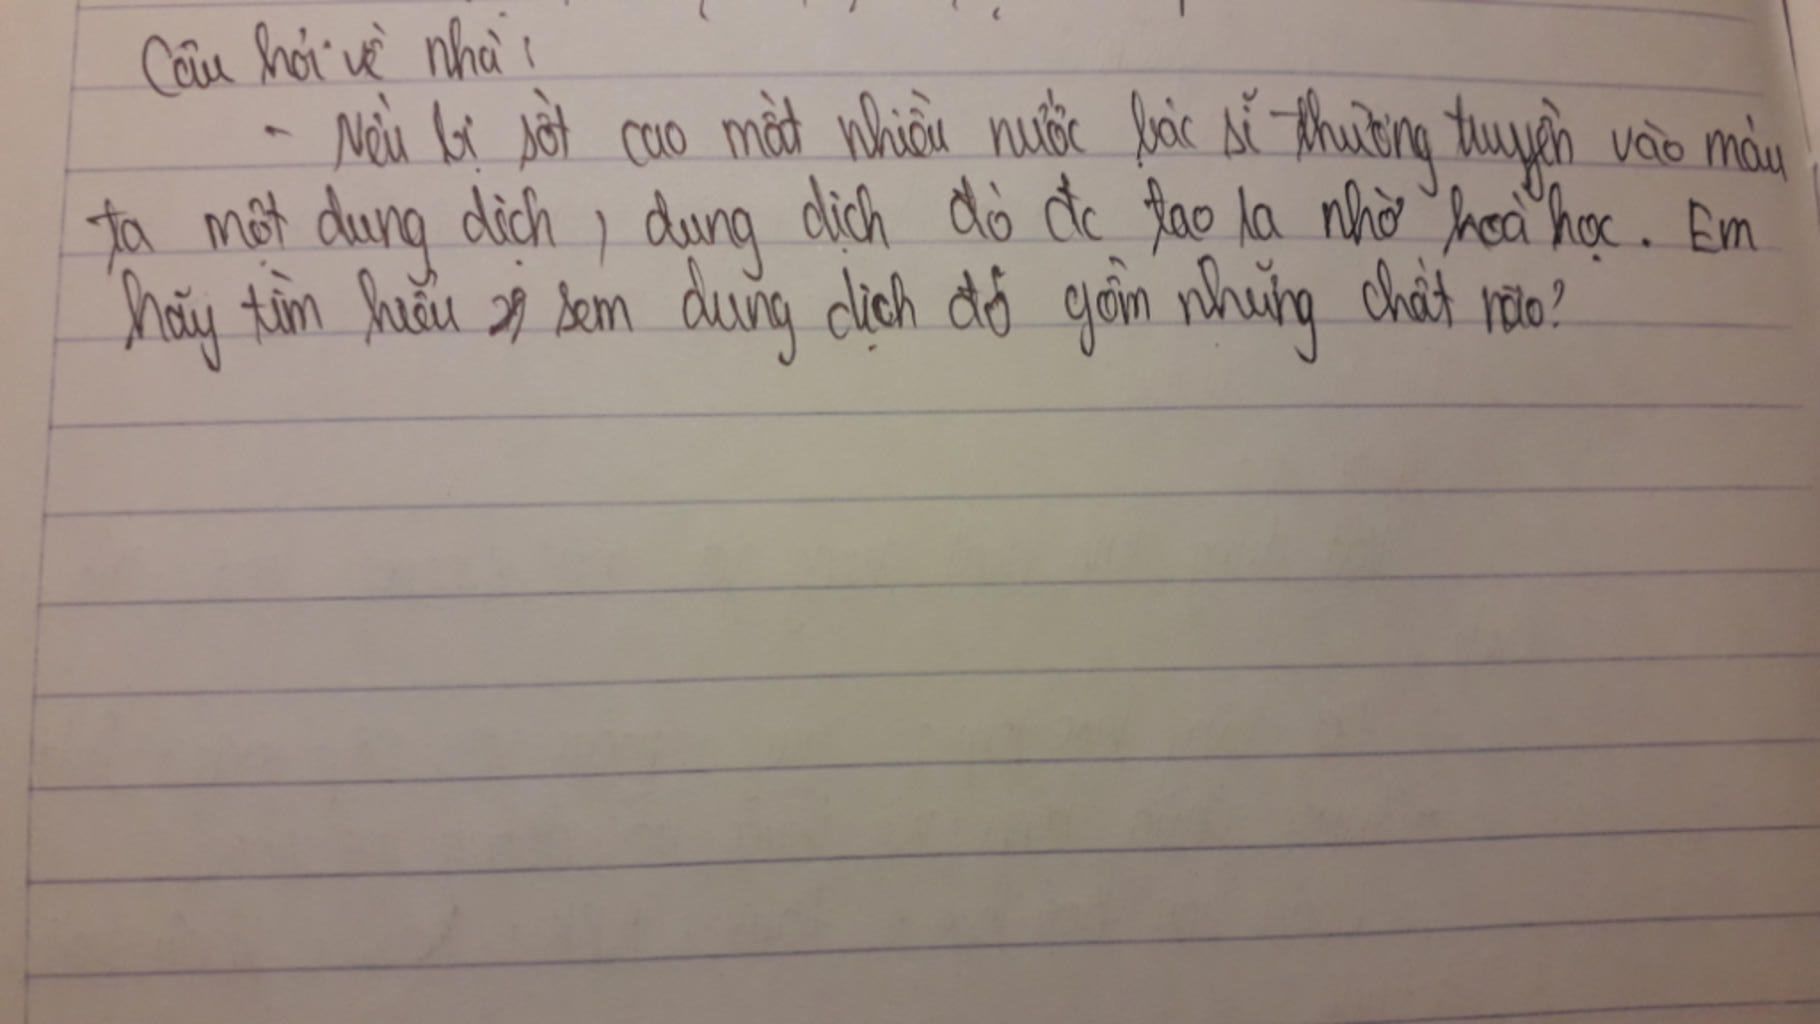 Câu hỏi về nhà:
- Nếu bị sốt cao mất nhiều nước bác sĩ thường truyền vào máu
ta một dung dịch, dung dịch đó đc tạo ra nhờ hoá học. Em
hãy tìm hiểu sem dung dịch đó gồm những chất nào?